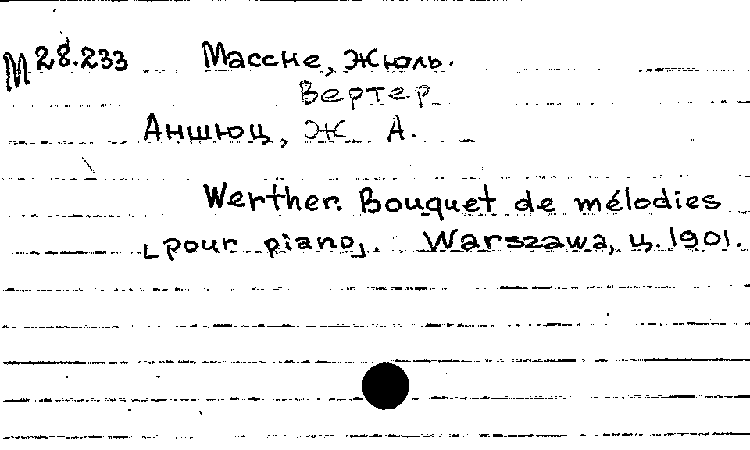 М 28.233 Массне, Жюль.
Вертер
Аншюц, Ж А.
Werther. Bouquet de mélodies
[pour piano]. Warszawa, ц. 1901.